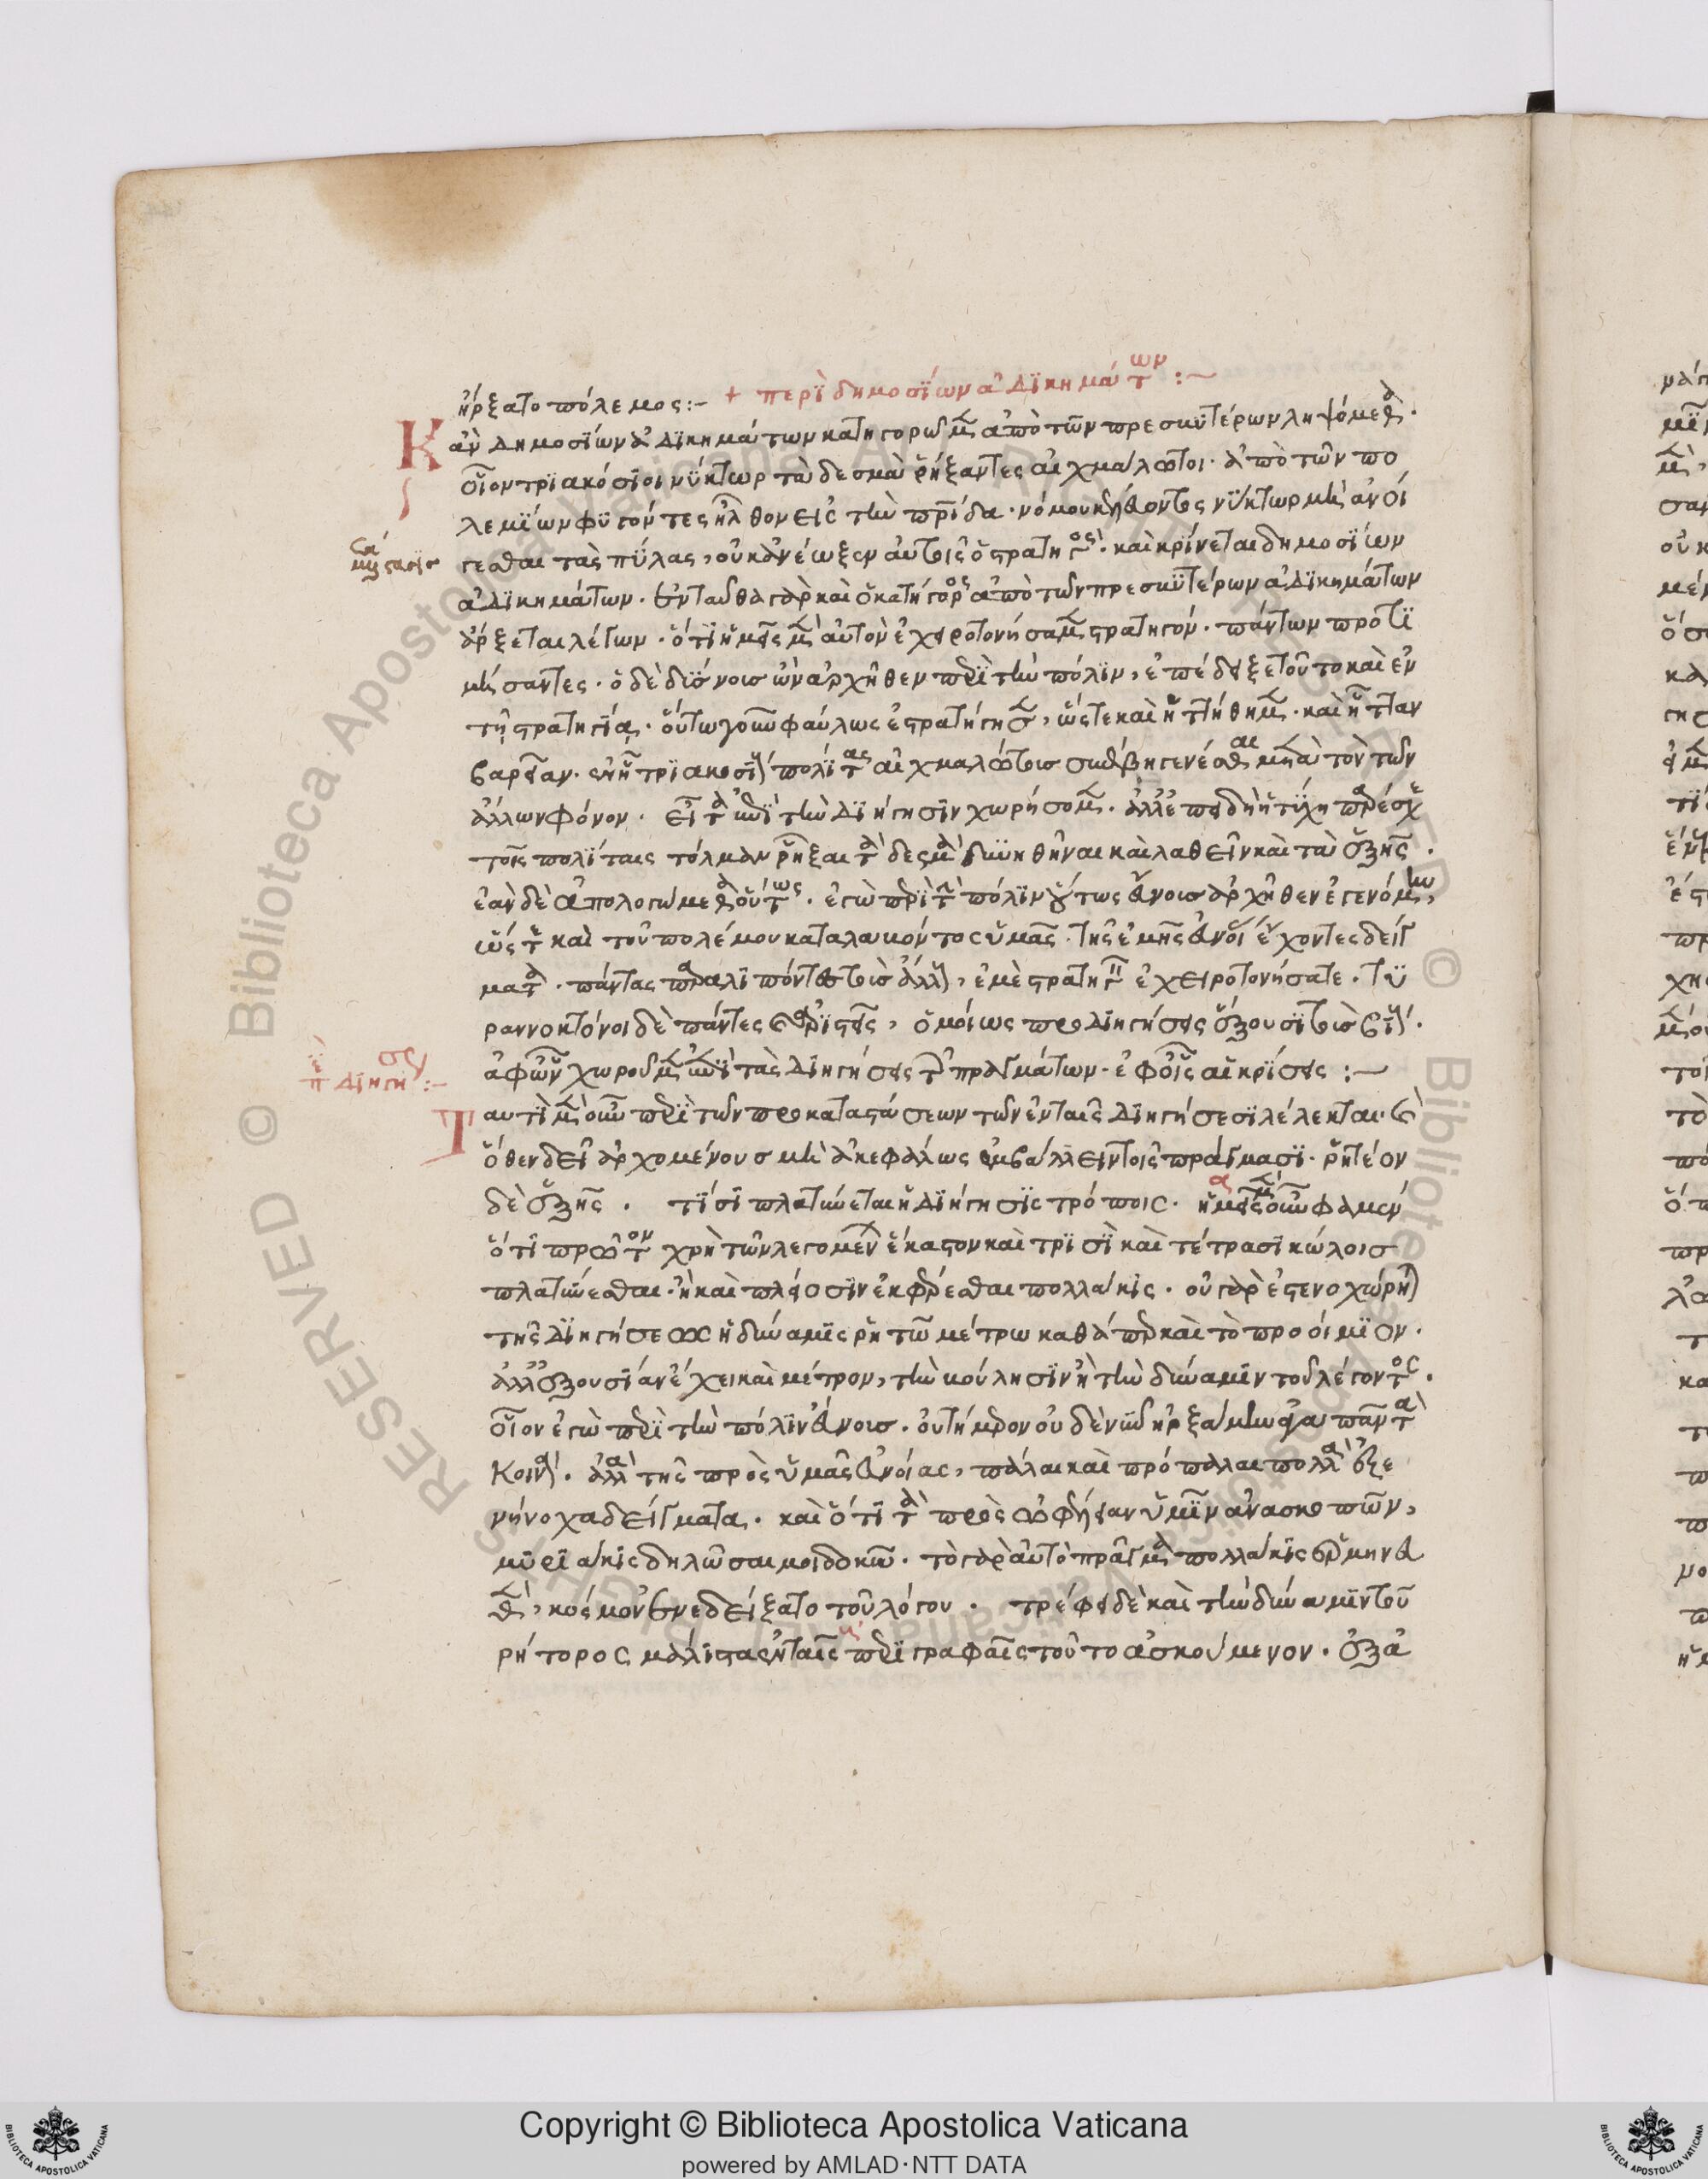 ἤρξατο πόλεμος :– + περὶ δημοσίων ἀδικημάτων :~
Κἂν δημοσίων ἀδικημάτων κατηγορῶμεν ἀπὸ τῶν πρεσβυτέρων ληψόμεθα·
οἷον τριακόσιοι νύκτωρ τὰ δεσμὰ ῥήξαντες αἰχμάλωτοι· ἀπὸ τῶν πο
λεμίων φυγόντες ἦλθον εἰς τὴν πατρίδα· νόμου κελεύοντος νύκτωρ μὴ ἀνοί
γεσθαι τὰς πύλας, οὐκ ἀνέωξεν αὐτοῖς ὁ στρατηγός· καὶ κρίνεται δημοσίων
ἀδικημάτων· ἐνταῦθα γὰρ καὶ ὁ κατήγορος ἀπὸ τῶν πρεσβυτέρων ἀδικημάτων
ἄρξεται λέγων· ὅτι ἡμεῖς μὲν αὐτὸν ἐχειροτονήσαμεν στρατηγόν· πάντων προτι
μήσαντες· ὁ δὲ δύσνοις ὢν ἀρχῆθεν περὶ τὴν πόλιν, ἐπέδειξε τοῦτο καὶ ἐν
τῇ στρατηγίᾳ· οὕτω γοῦν φαύλως ἐστρατήγησεν, ὥστε καὶ ἡττήθημεν· καὶ ἧτταν
βαρεῖαν·
τριακοσίους πολίτας αἰχμαλώτους συνέβη γενέσθαι μετὰ τὸν τῶν
ἄλλων φόνον· εἶτα ἐπὶ τὴν διήγησιν χωρήσομεν· ἀλλ' ἐπειδὴ ἡ τύχη παρέσχε
τοῖς πολίταις τόλμαν ῥῆξαι τὰ δεσμὰ δυνηθῆναι καὶ λαθεῖν καὶ τὰ ἑξῆς·
ἐὰν δὲ ἀπολογώμεθα οὕτως· ἐγὼ περὶ τὴν πόλιν οὕτως εὔνοις ἀρχῆθεν ἐγενόμην,
ὥστε καὶ τοῦ πολέμου καταλαβόντος ὑμᾶς· τῆς ἐμῆς εὐνοίας ἔχοντες δείγ
ματα· πάντας παραλιπόντες τοὺς ἄλλους, ἐμὲ στρατηγὸν ἐχειροτονήσατε· τυ
ραννοκτόνοι δὲ πάντες
ὁμοίως προδιηγήσεις ἕξουσι
ἀφ' ὧν χωροῦμεν ἐπὶ τὰς διηγήσεις τῶν πραγμάτων· ἐφ' οἷς αἱ κρίσεις :~
περὶ διηγήσεως :–
Ταυτὶ μὲν οὖν περὶ τῶν προκαταστάσεων τῶν ἐν ταῖς διηγήσεσι λέλεκται·
ὅθεν δεῖ ἀρχομένους μὴ ἀκεφάλως ἐμβάλλειν τοῖς πράγμασι· ῥητέον
δὲ ἑξῆς· τίσι πλατύνεται ἡ διήγησις τρόποις· ἡμεῖς μὲν οὖν φαμὲν
ὅτι πρῶτον χρὴ τῶν λεγομένων ἕκαστον καὶ τρισὶ καὶ τέτρασι κώλοις
πλατύνεσθαι· ἢ καὶ πλείοσιν ἐκφέρεσθαι πολλάκις· οὐ γὰρ ἐστενοχώρηται
τῆς διηγήσεως ἡ δύναμις ῥητῷ μέτρῳ καθάπερ καὶ τὸ προοίμιον·
ἀλλ' ἐξουσίαν ἔχει καὶ μέτρον, τὴν βούλησιν ἢ τὴν δύναμιν τοῦ λέγοντος·
οἷον ἐγὼ περὶ τὴν πόλιν εὔνοις· οὐ τήμερον οὐδὲ νῦν ἠρξάμην εἶναι πάντα
κοινά· ἀλλὰ τῆς πρὸς ὑμᾶς εὐνοίας, πάλαι καὶ πρόπαλαι πολλὰ ἐξε
νήνοχα δείγματα· καὶ ὅτι τὰ πρὸς ὠφέλειαν ὑμῖν ἀνασκοπῶν,
μυριάκις δηλῶσαι μοι δοκῶ· τὸ γὰρ αὐτὸ πρᾶγμα πολλάκις ἑρμηνευ
θὲν, κόσμον ἐνεδείξατο τοῦ λόγου· τρέφει δὲ καὶ τὴν δύναμιν τοῦ
ῥήτορος μάλιστα ἐν ταῖς περιγραφαῖς τοῦτο ἀσκούμενον· ἐξα
Copyright © Biblioteca Apostolica Vaticana
powered by AMLAD·NTT DATA